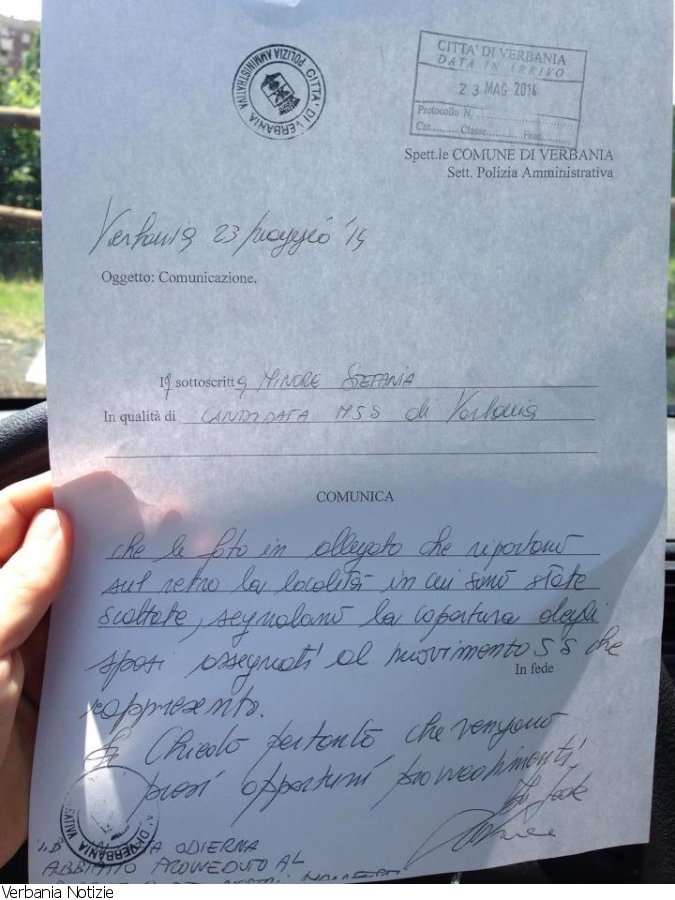 CITTA' DI VERBANIA
POLIZIA AMMINISTRATIVA
CITTA' DI VERBANIA
DATA IN ARRIVO
23 MAG 2014
Protocollo N.
Cat. Classe Fasc.
Spett.le COMUNE DI VERBANIA
Sett. Polizia Amministrativa
Verbania 23 maggio '14
Oggetto: Comunicazione.
Ia sottoscritta MINORE STEFANIA
In qualità di CANDIDATA M5S di Verbania
COMUNICA
che le foto in allegato che riportano
sul retro la località in cui sono state
scattate, segnalano la copertura degli
spazi assegnati al movimento 5 S che
In fede
rappresento.
Chiedo pertanto che vengano
presi opportuni provvedimenti.
In fede
DI VERBANIA
ODIERNA
ABBIAMO PROVVEDUTO AL
Verbania Notizie